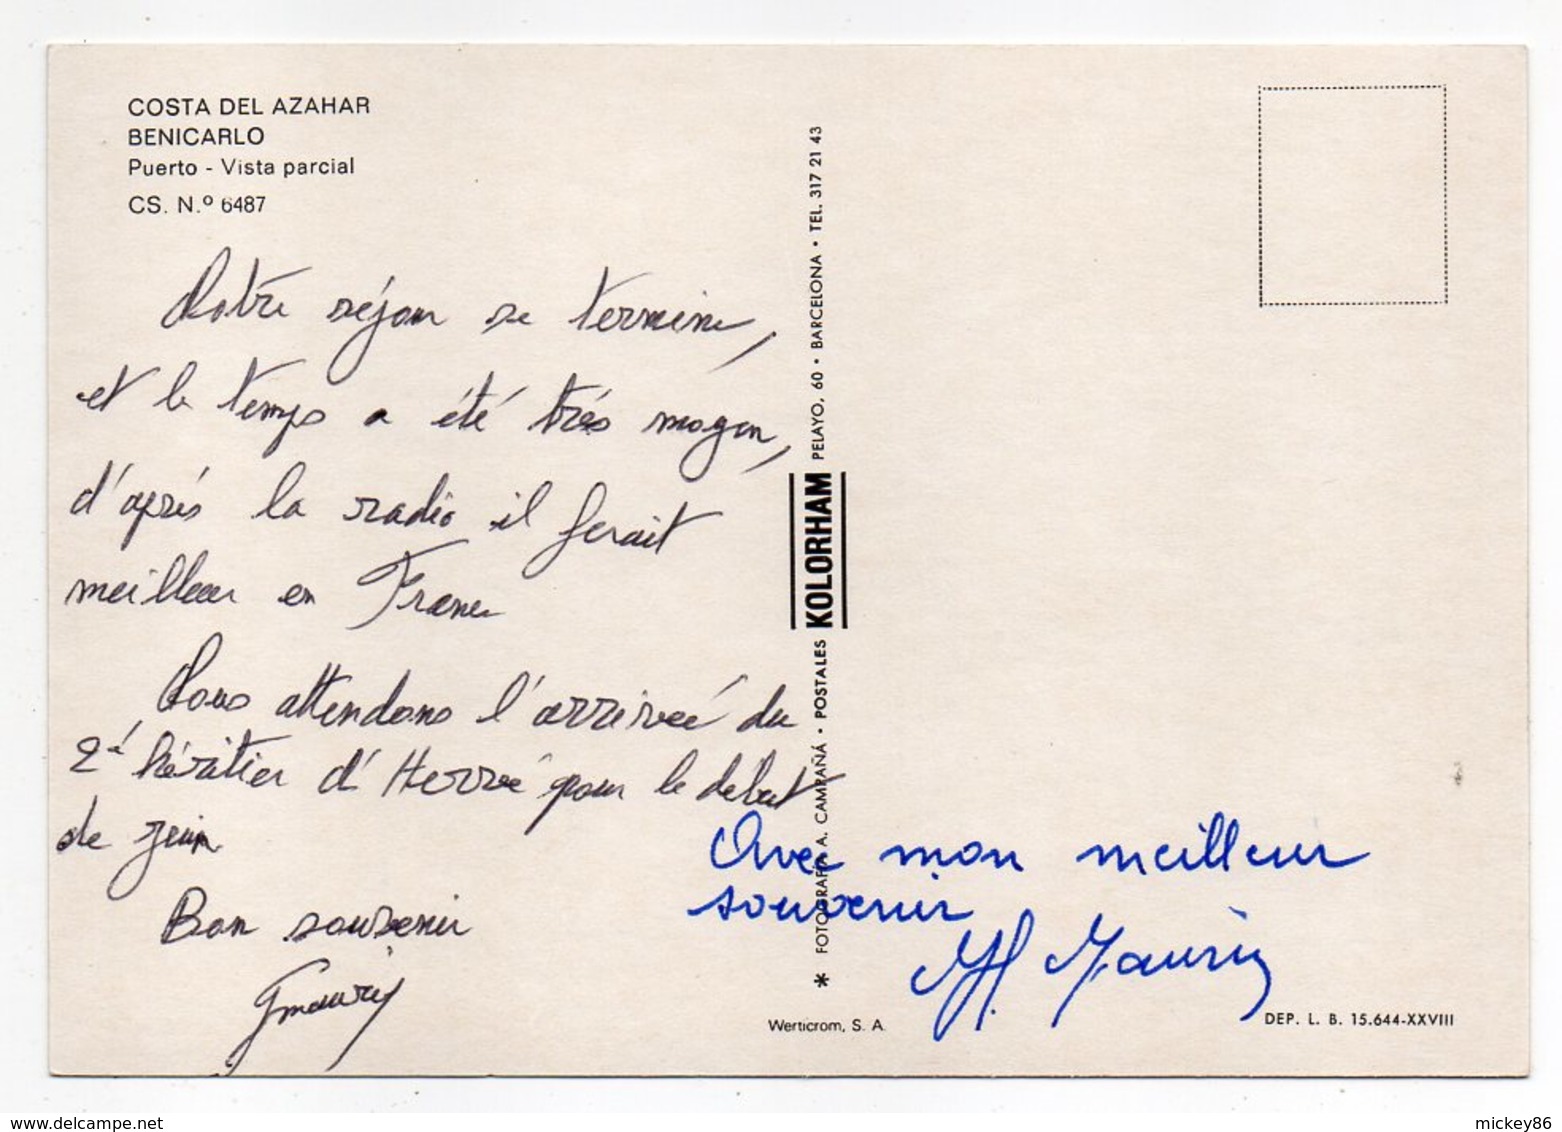 COSTA DEL AZAHAR
BENICARLO
Puerto - Vista parcial
CS. N.º 6487
Notre séjour se termine,
et le temps a été très moyen,
d'après la radio il ferait
meilleur en France
Nous attendons l'arrivée du
2è héritier d'Hervé pour le début
de juin
Bon souvenir
* FOTOGRAFIA A. CAMPAÑÁ • POSTALES KOLORHAM PELAYO, 60 • BARCELONA • TEL. 317 21 43
Avec mon meilleur
souvenir
Werticrom, S. A.
DEP. L. B. 15.644-XXVIII
www.delcampe.net
mickey86